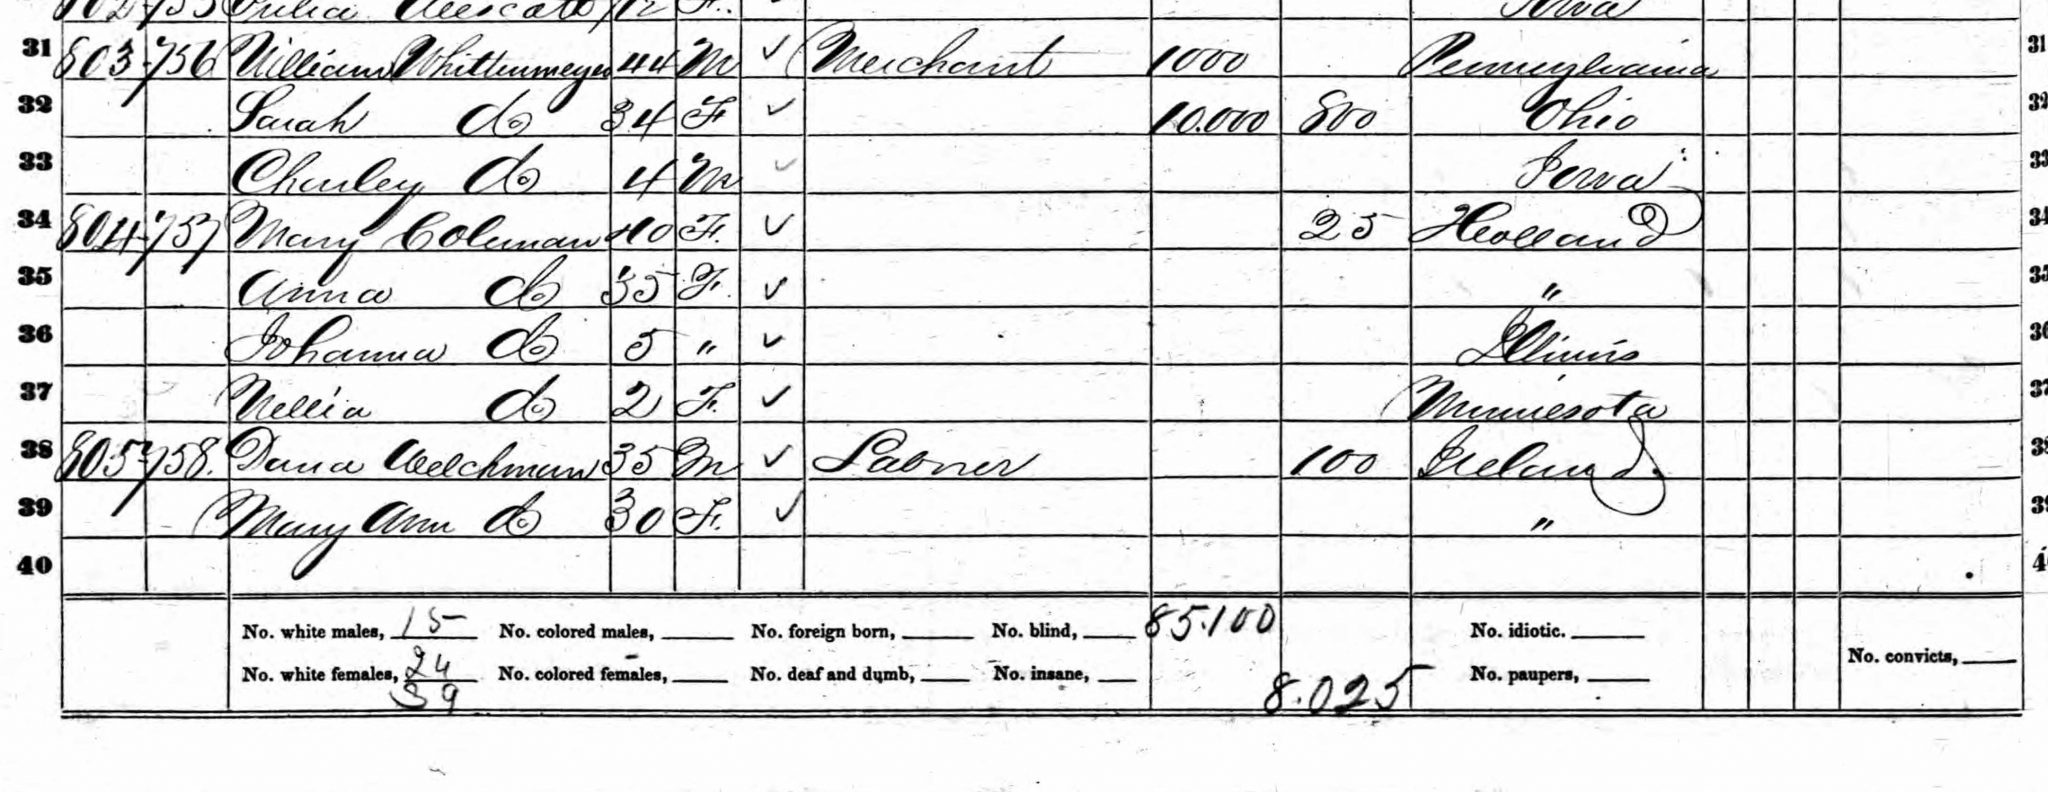 802 755 Julia Wescott /12 F. Iowa
31 803 756 William Whittenmeyer 44 M ✓ Merchant 1000 Pennsylvania 31
32 Sarah do 34 F ✓ 10.000 800 Ohio 32
33 Charley do 4 M ✓ Iowa 33
34 804 757 Mary Coleman 40 F. ✓ 25 Holland 34
35 Anna do 35 F. ✓ " 35
36 Johanna do 5 " ✓ Illinois 36
37 Nellia do 2 F. ✓ Minnesota 37
38 805 758. Dana Welchman 35 M ✓ Labner 100 Ireland. 38
39 Mary Ann do 30 F. ✓ " 39
40
No. white males, 15 No. colored males, No. foreign born, No. blind, 85.100 No. idiotic.
No. white females, 24 No. colored females, No. deaf and dumb, No. insane, 8.025 No. paupers, No. convicts,
39